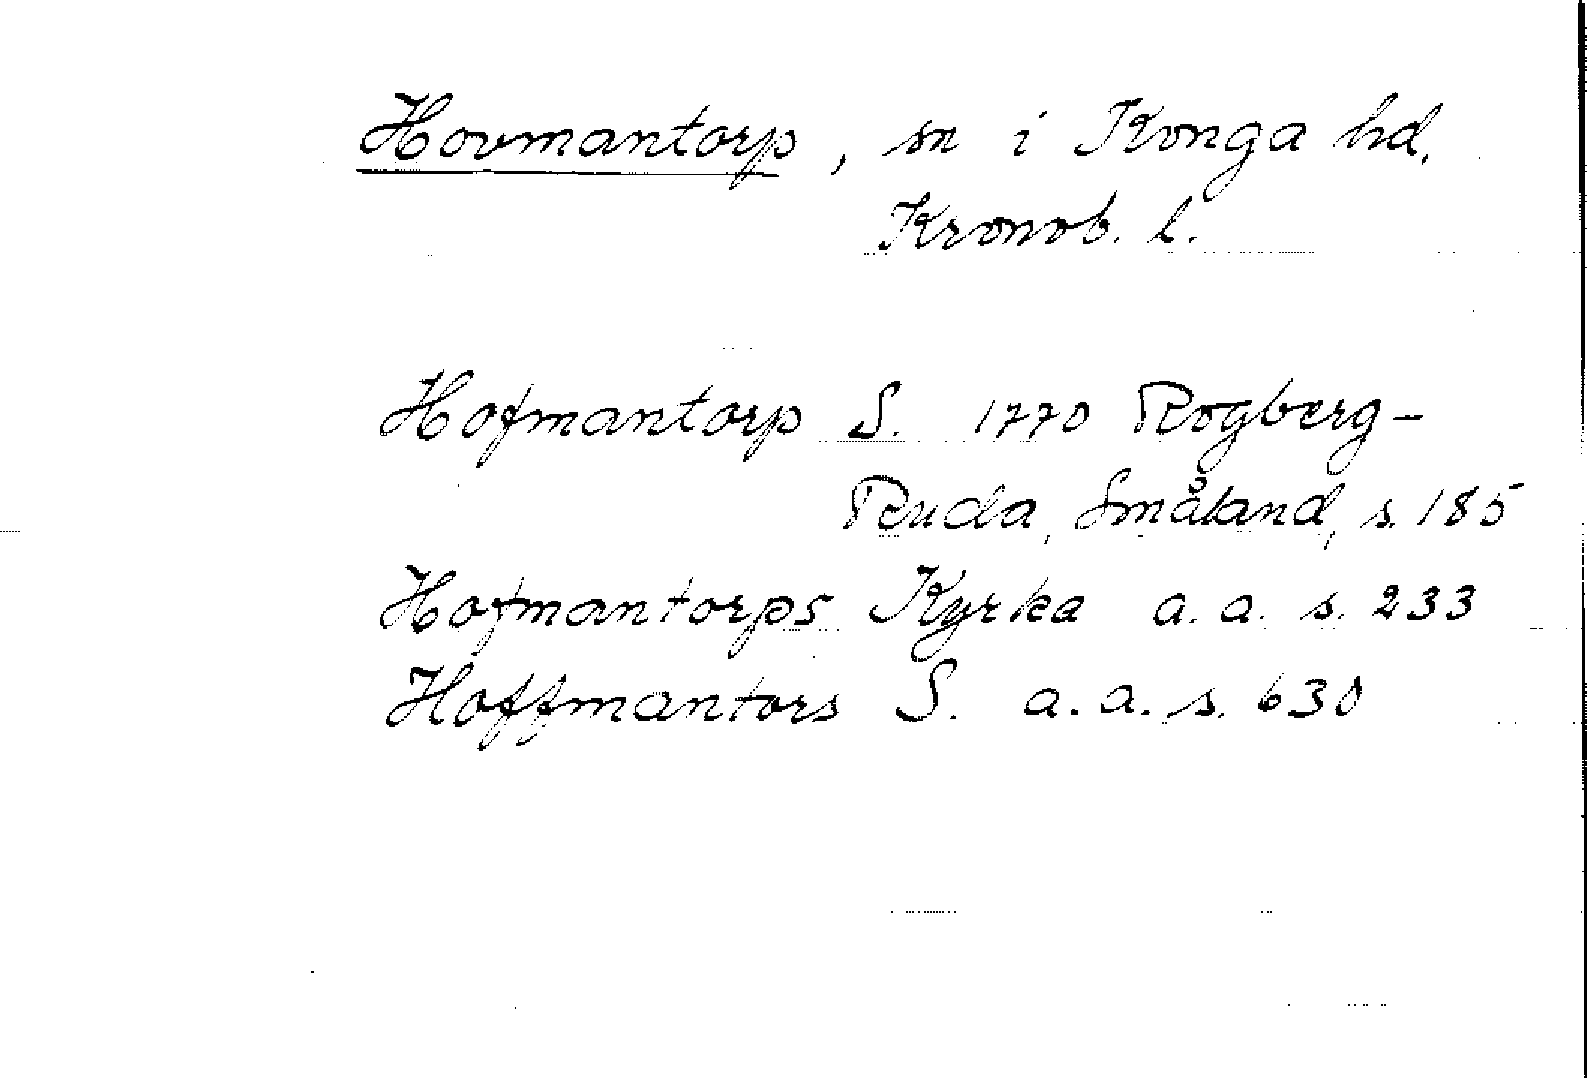 Hovmantorp, sn i Konga hd,
Kronob. l.
Hofmantorp S. 1770 Rogberg-
Ruda, Småland, s. 185
Hofmantorps Kyrka a. a. s. 233
Hoffmantors S. a. a. s. 630